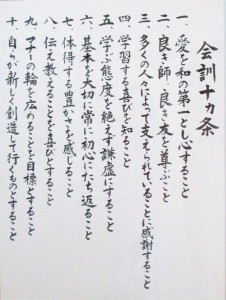 会訓十ヵ条
一、愛を和の第一とし心すること
二、良き師、良き友を尊ぶこと
三、多くの人々によって支えられていることに感謝すること
四、学習する喜びを知ること
五、学ぶ態度を絶えず謙虚にすること
六、基本を大切に常に初心にたち返ること
七、体得する豊かさを感じること
八、伝え教えることを喜びとすること
九、マナーの輪を広めることを目標とすること
十、自らが新しく創造して行くものとすること